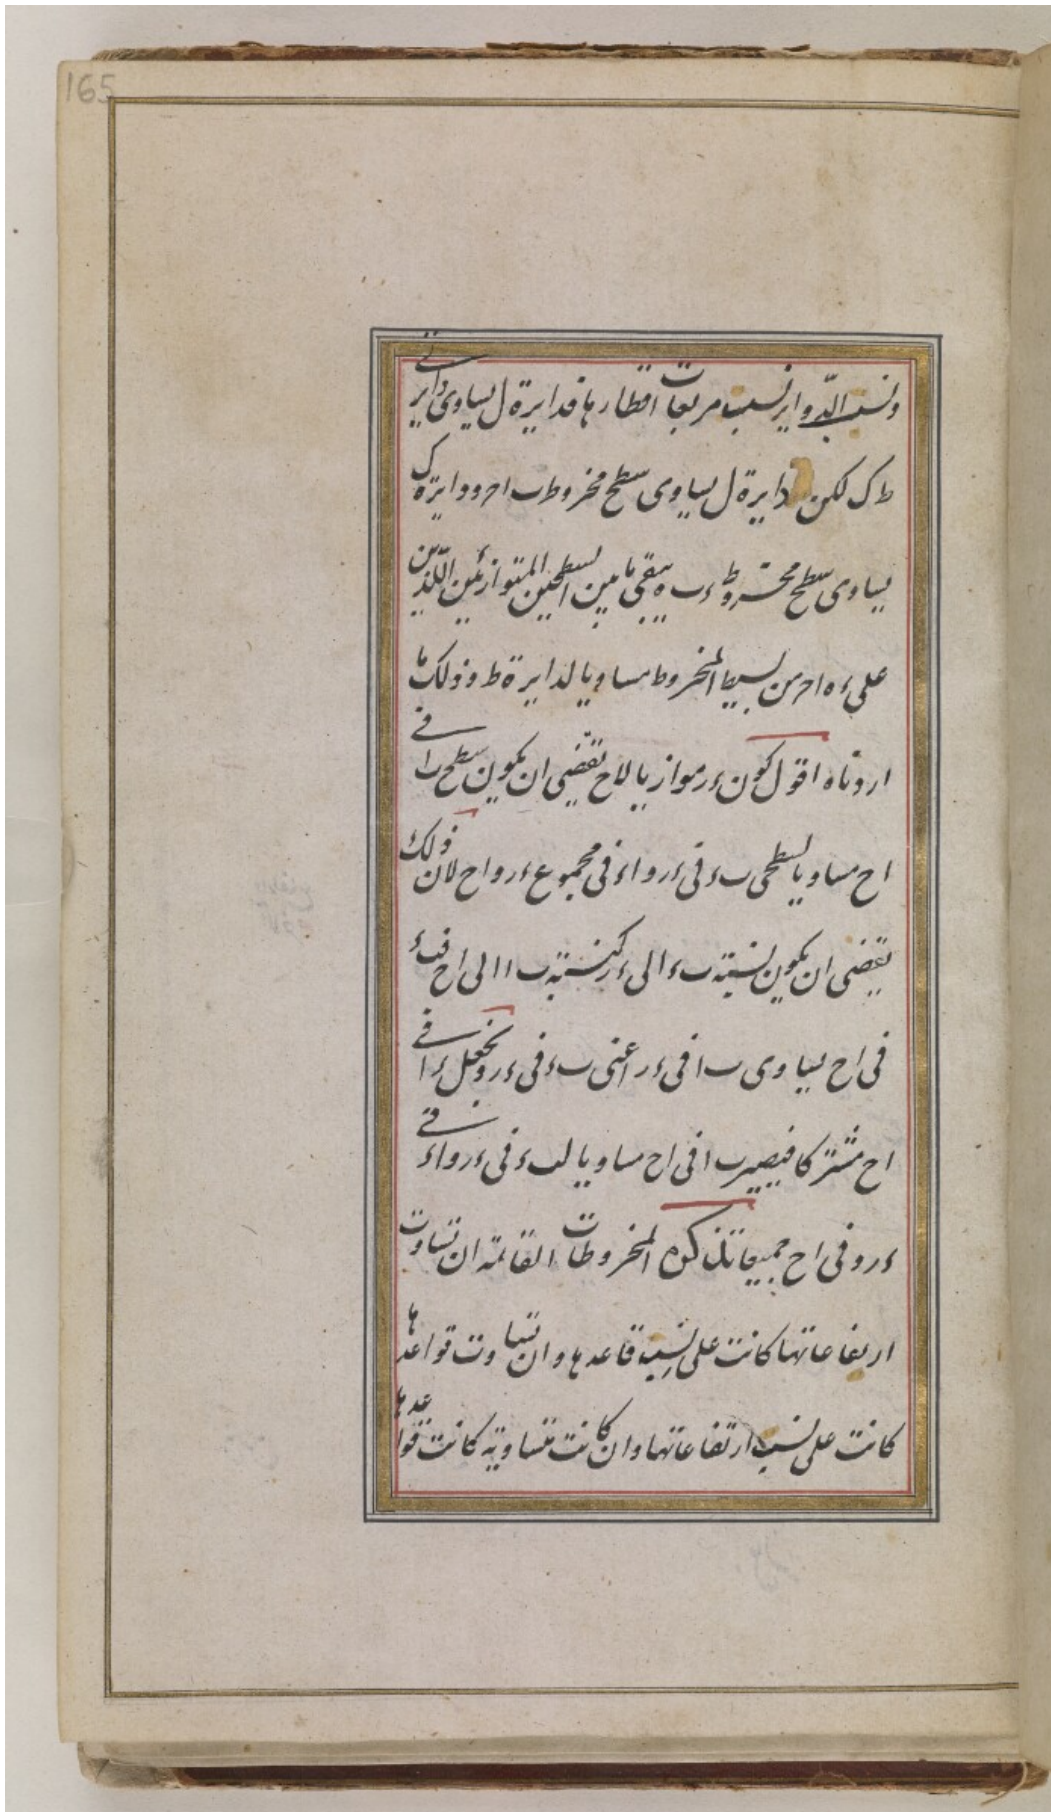 165
ونسب الدّواير نسب مربعات اقطارها فدايرة ل يساوى دايرتى
ط ك لكن دايرة ل يساوى سطح مخروط ب ا ح ودايرة ك
يساوى سطح مخروط ء ب ه يبقى ما بين السطحين المتوازيين اللّذين
على ء ه ا ح من بسيط المخروط مساويا لدايرة ط وذلك ما
اردناه اقول كون ء ر موازيا لاح تقضى ان يكون سطح ب ا فى
اح مساويا لسطحى ب ء فى ء ر و ا ء فى مجموع ء ر و اح لان ذلك
يقضى ان يكون نسبة ب ء الى ء ر كنسبة ب ا الى اح فب ء
فى اح يساوى ب ا فى ء ر اعنى ب ء فى ء ر ونجعل ء ا فى
اح مشتركا فيصير ب ا فى اح مساويا لب ء فى ء ر و ا ء فى
ء ر و فى اح جميعا تذكرة المخروطات القائمة ان تساوت
ارتفاعاتها كانت على نسبة قاعدها وان تساوت قواعدها
كانت على نسب ارتفاعاتها وان كانت متساوية كانت قواعدها